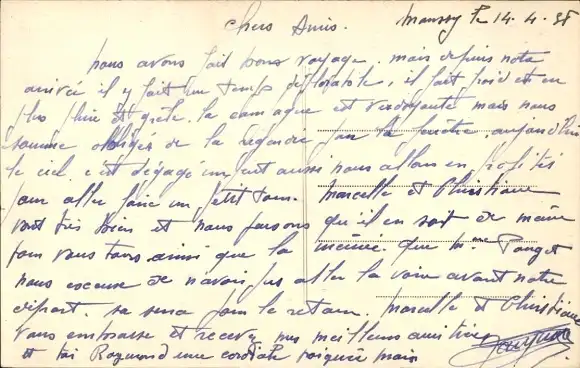 Chers Amis. Maussy le 14.4.38
nous avons fait bons voyage, mais depuis notre
arrivée il y fait un temps déplorable, il fait froid et en
plus pluie et grêle. la campagne est verdoyante mais nous
somme obligés de la regarder par la fenêtre, aujourd'hui
le ciel c'est dégagé un peut aussi nous allons en profités
pour aller faire un petit tour. Marcelle et Christiane
vont très bien et nous pensons qu'il en soit de même
pour vous tous ainsi que la mémère. que Mme Pouget
nous excuse de n'avoir pas aller la voir avant notre
départ. sa sera pour le retour. Marcelle et Christiane
vous embrasse et recevez mes meilleurs amitiées
et toi Raymond une cordiale poignée main